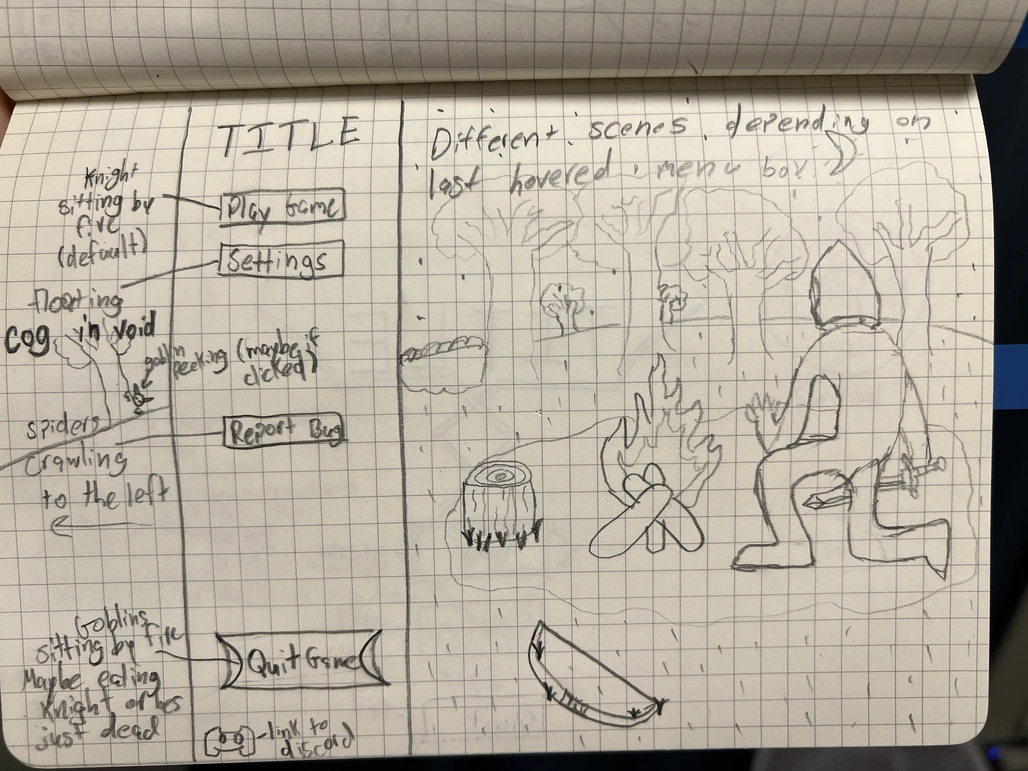 TITLE
Different scenes depending on
last hovered menu box
Knight
sitting by
fire
(default)
Play Game
Settings
floating
cog in void
goblin
peeking (maybe if
clicked)
spiders
crawling
to the left
Report Bug
Goblins
sitting by fire
Maybe eating
Knight or hes
just dead
Quit Game
-link to
discord